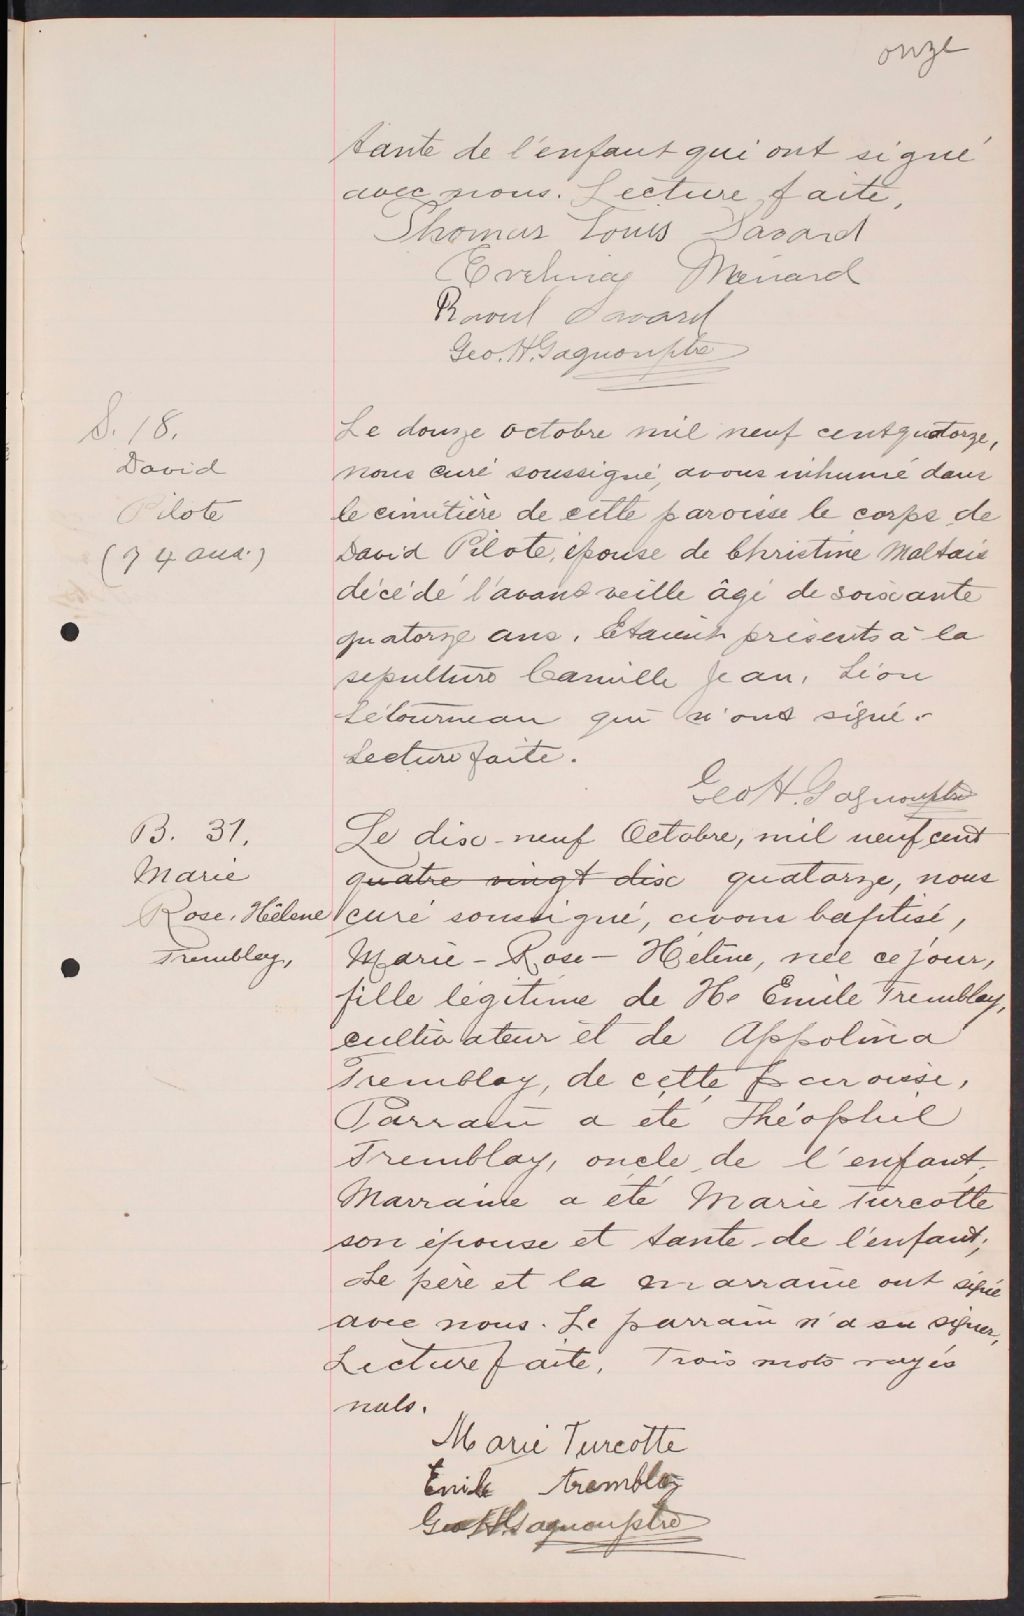 onze
tante de l'enfant qui ont signé
avec nous. Lecture faite,
Thomas Louis Savard
Evelina Ménard
Raoul Savard
Geo. H. Gagnon ptre
S. 18.
David
Pilote
(74 ans.)
Le douze octobre mil neuf cent quatorze,
nous curé soussigné, avons inhumé dans
le cimitière de cette paroisse le corps de
David Pilote, épouse de Christine Maltais
décédé l'avant veille âgé de soixante
quatorze ans. Etaient présents à la
sepulture Camille Jean, Léon
Létourneau qui n'ont signé.
Lecture faite.
Geo H. Gagnon ptre
B. 31.
Marie
Rose, Hélène
Tremblay,
Le dix-neuf Octobre, mil neuf cent
quatre vingt dix quatorze, nous
curé soussigné, avons baptisé,
Marie-Rose-Hélène, née ce jour,
fille légitime de Hs Emile Tremblay,
cultivateur et de Appolina
Tremblay, de cette paroisse,
Parrain a été Théophil
Tremblay, oncle de l'enfant,
Marraine a été Marie Turcotte
son épouse et tante de l'enfant;
Le père et la marraine ont signé
avec nous. Le parrain n'a su signer,
Lecture faite. Trois mots rayés
nuls.
Marie Turcotte
Emile tremblay
Geo H. Gagnon ptre